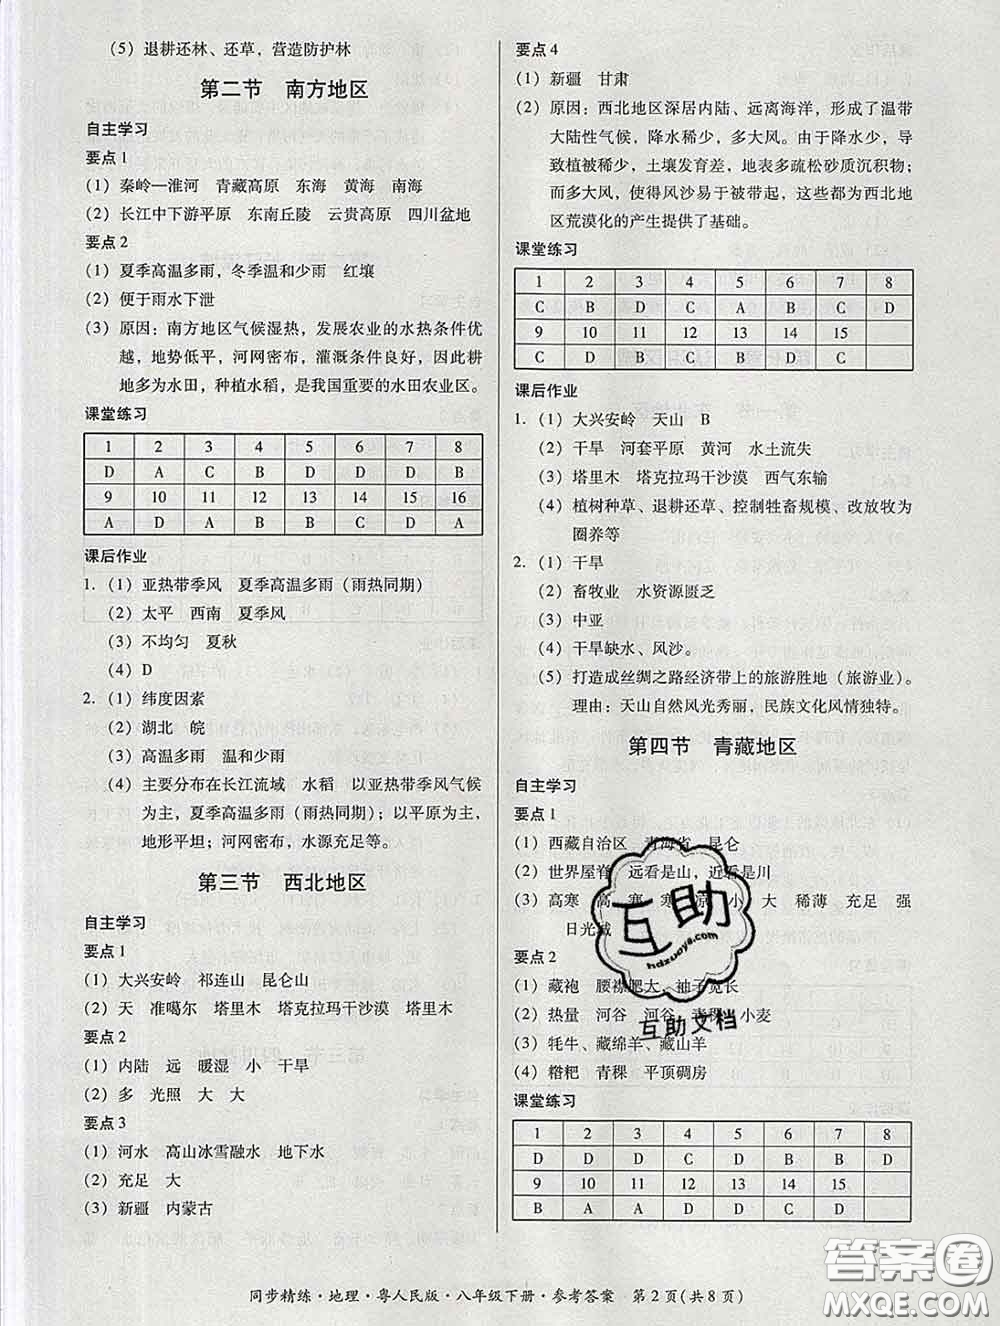 (5) 退耕还林、还草，营造防护林
第二节　南方地区
自主学习
要点 1
(1) 秦岭—淮河　青藏高原　东海　黄海　南海
(2) 长江中下游平原　东南丘陵　云贵高原　四川盆地
要点 2
(1) 夏季高温多雨，冬季温和少雨　红壤
(2) 便于雨水下泄
(3) 原因：南方地区气候湿热，发展农业的水热条件优
越，地势低平，河网密布，灌溉条件良好，因此耕
地多为水田，种植水稻，是我国重要的水田农业区。
课堂练习
1 2 3 4 5 6 7 8
D A C B D D D B
9 10 11 12 13 14 15 16
A D A B C D B A
课后作业
1. (1) 亚热带季风　夏季高温多雨（雨热同期）
(2) 太平　西南　夏季风
(3) 不均匀　夏秋
(4) D
2. (1) 纬度因素
(2) 湖北　皖
(3) 高温多雨　温和少雨
(4) 主要分布在长江流域　水稻　以亚热带季风气候
为主，夏季高温多雨（雨热同期）；以平原为主，
地形平坦；河网密布，水源充足等。
第三节　西北地区
自主学习
要点 1
(1) 大兴安岭　祁连山　昆仑山
(2) 天　准噶尔　塔里木　塔克拉玛干沙漠　塔里木
要点 2
(1) 内陆　远　暖湿　小　干旱
(2) 多　光照　大　大
要点 3
(1) 河水　高山冰雪融水　地下水
(2) 充足　大
(3) 新疆　内蒙古
要点 4
(1) 新疆　甘肃
(2) 原因：西北地区深居内陆、远离海洋，形成了温带
大陆性气候，降水稀少，多大风。由于降水少，导
致植被稀少，土壤发育差，地表多疏松砂质沉积物；
而多大风，使得风沙易于被带起，这些都为西北地
区荒漠化的产生提供了基础。
课堂练习
1 2 3 4 5 6 7 8
C B D C A B C D
9 10 11 12 13 14 15
C D B C D C B
课后作业
1. (1) 大兴安岭　天山　B
(2) 干旱　河套平原　黄河　水土流失
(3) 塔里木　塔克拉玛干沙漠　西气东输
(4) 植树种草、退耕还草、控制牲畜规模、改放牧为
圈养等
2. (1) 干旱
(2) 畜牧业　水资源匮乏
(3) 中亚
(4) 干旱缺水、风沙。
(5) 打造成丝绸之路经济带上的旅游胜地（旅游业）。
理由：天山自然风光秀丽，民族文化风情独特。
第四节　青藏地区
自主学习
要点 1
(1) 西藏自治区　青海省　昆仑
(2) 世界屋脊　远看是山，近看是川
(3) 高寒　高　寒　寒　凉　小　大　稀薄　充足　强
日光城
要点 2
(1) 藏袍　腰襟肥大，袖子宽长
(2) 热量　河谷　河谷　青稞　小麦
(3) 牦牛、藏绵羊、藏山羊
(4) 糌粑　青稞　平顶碉房
课堂练习
1 2 3 4 5 6 7 8
D D D C D B B D
9 10 11 12 13 14 15
B A A D D C D
互助
hdzuoye.com
互助文档
同步精练·地理·粤人民版·八年级下册·参考答案　第 2 页（共 8 页）
答案圈
MXQE.COM